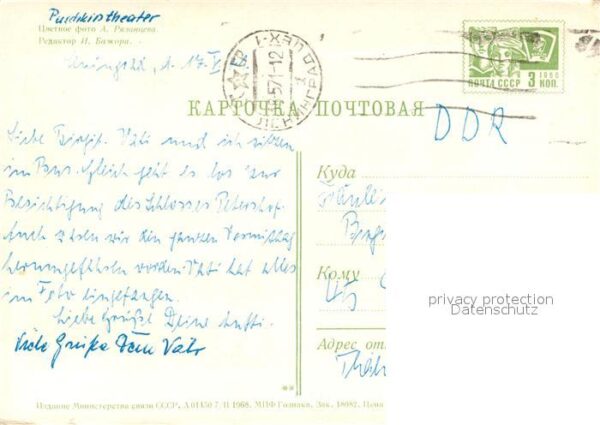 Puschkintheater
Цветное фото А. Рязанцева
Редактор И. Бажора.
Leningrad, d. 17. V
ЛЕНИНГРАД ЦЕХ-1
ПОЧТА СССР 3 КОП.
1966
КАРТОЧКА ПОЧТОВАЯ
DDR
Liebe Birgit. Vati und ich sitzen
im Bus. Gleich geht es los zur
Besichtigung des Schlosses Petershof.
Auch gestern wir den ganzen Vormittag
herumgefahren worden. Vati hat alles
im Foto eingefangen.
Liebe Grüße Deine Mutti.
Viele Grüße Dein Vati
Куда
Fräulein
Кому
Адрес от
privacy protection
Datenschutz
Издание Министерства связи СССР. А 01450 7/II 1968. МПФ Гознака. Зак. 18082. Цена